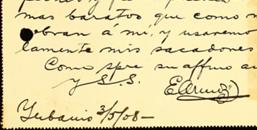 mas baratos que como m
obran a mi, y usaremo
lamente mis sacadores
Como spre su affmo a
y S. S.
3/5/08-